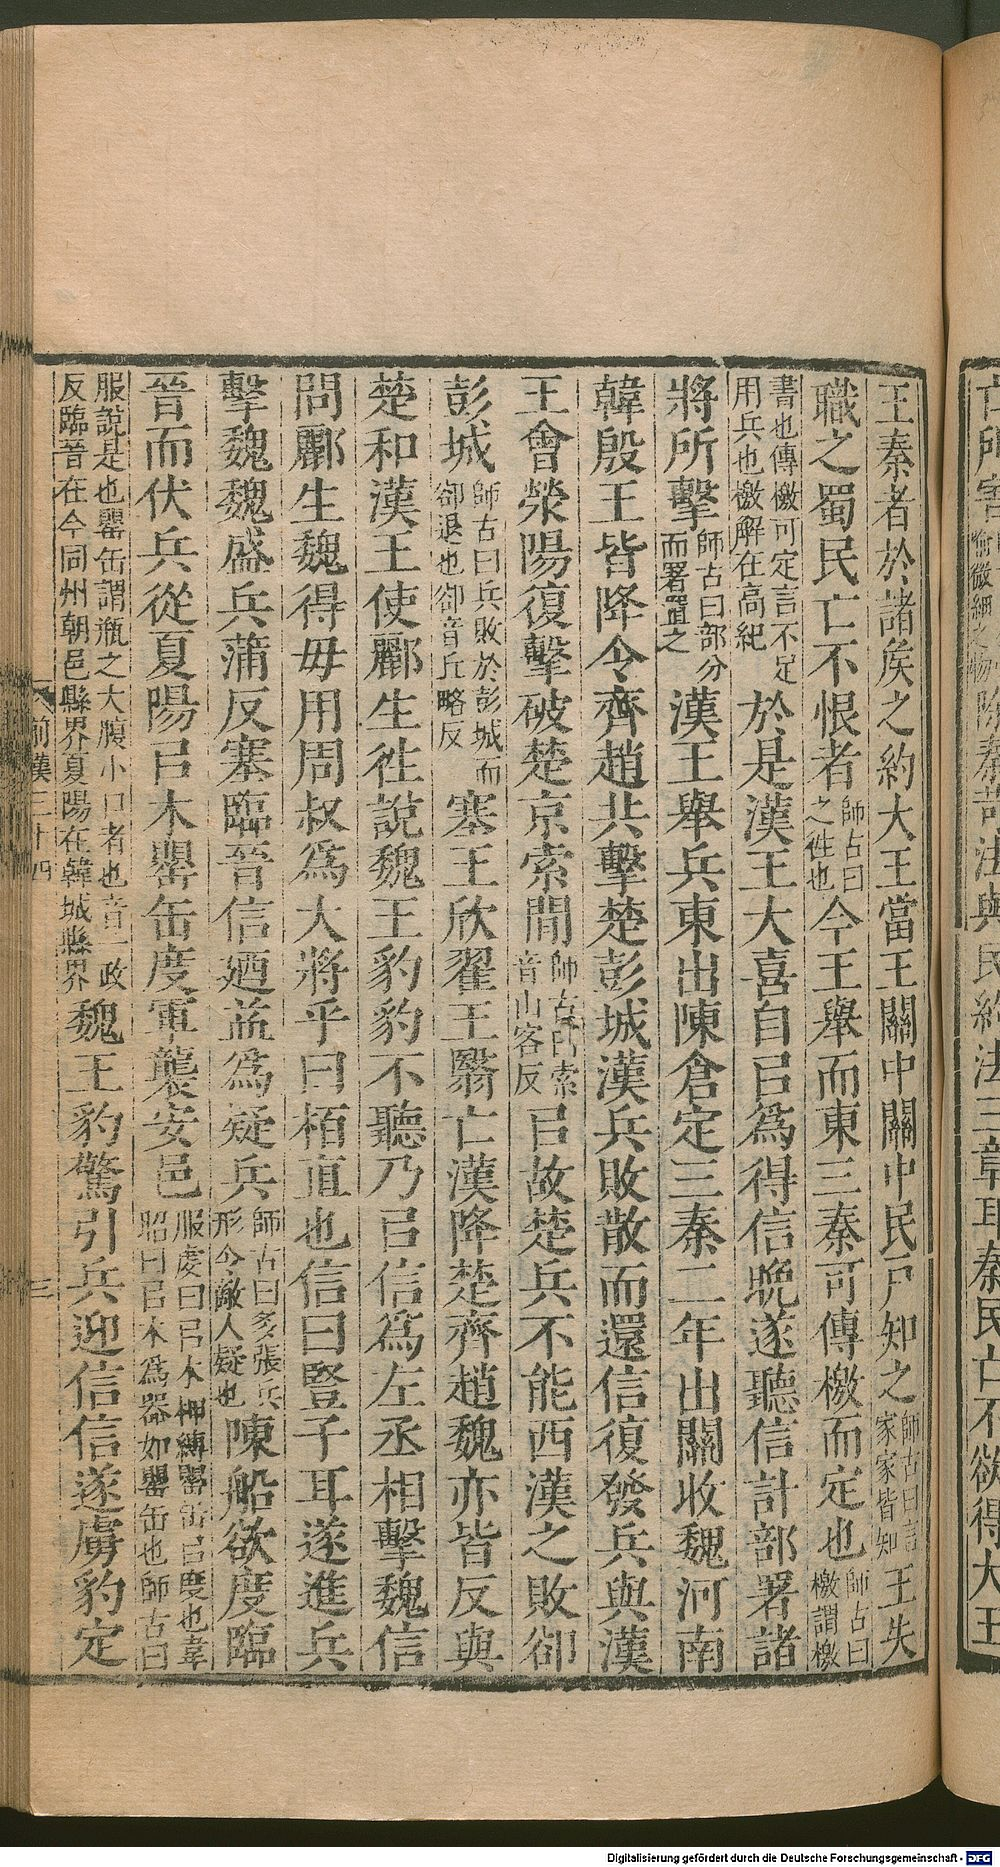 王秦者於諸侯之約大王當王關中關中民戶知之師古曰言家家皆知王失
職之蜀民亡不恨者師古曰之往也今王舉而東三秦可傳檄而定也師古曰檄謂檄
書也傳檄可定言不足用兵也檄解在高紀於是漢王大喜自㠯為得信晚遂聽信計部署諸
將所擊師古曰部分而署置之漢王舉兵東出陳倉定三秦二年出關收魏河南
韓殷王皆降令齊趙共擊楚彭城漢兵敗散而還信復發兵與漢
王會滎陽復擊破楚京索間師古曰索音山客反㠯故楚兵不能西漢之敗卻
彭城師古曰兵敗於彭城而卻退也卻音丘略反塞王欣翟王翳亡漢降楚齊趙魏亦皆反與
楚和漢王使酈生往說魏王豹豹不聽乃㠯信為左丞相擊魏信
問酈生魏得毋用周叔為大將乎曰栢直也信曰豎子耳遂進兵
擊魏魏盛兵蒲反塞臨晉信迺益為疑兵師古曰多張兵形令敵人疑也陳船欲度臨
晉而伏兵從夏陽㠯木罌缶度軍襲安邑服虔曰㠯木柙縛罌缶㠯度也韋昭曰㠯木為器如罌缶也師古曰
服說是也罌缶謂瓶之大腹小口者也音一政反臨晉在今同州朝邑縣界夏陽在韓城縣界魏王豹驚引兵迎信信遂虜豹定
前漢三十四
三
Digitalisierung gefördert durch die Deutsche Forschungsgemeinschaft - DFG